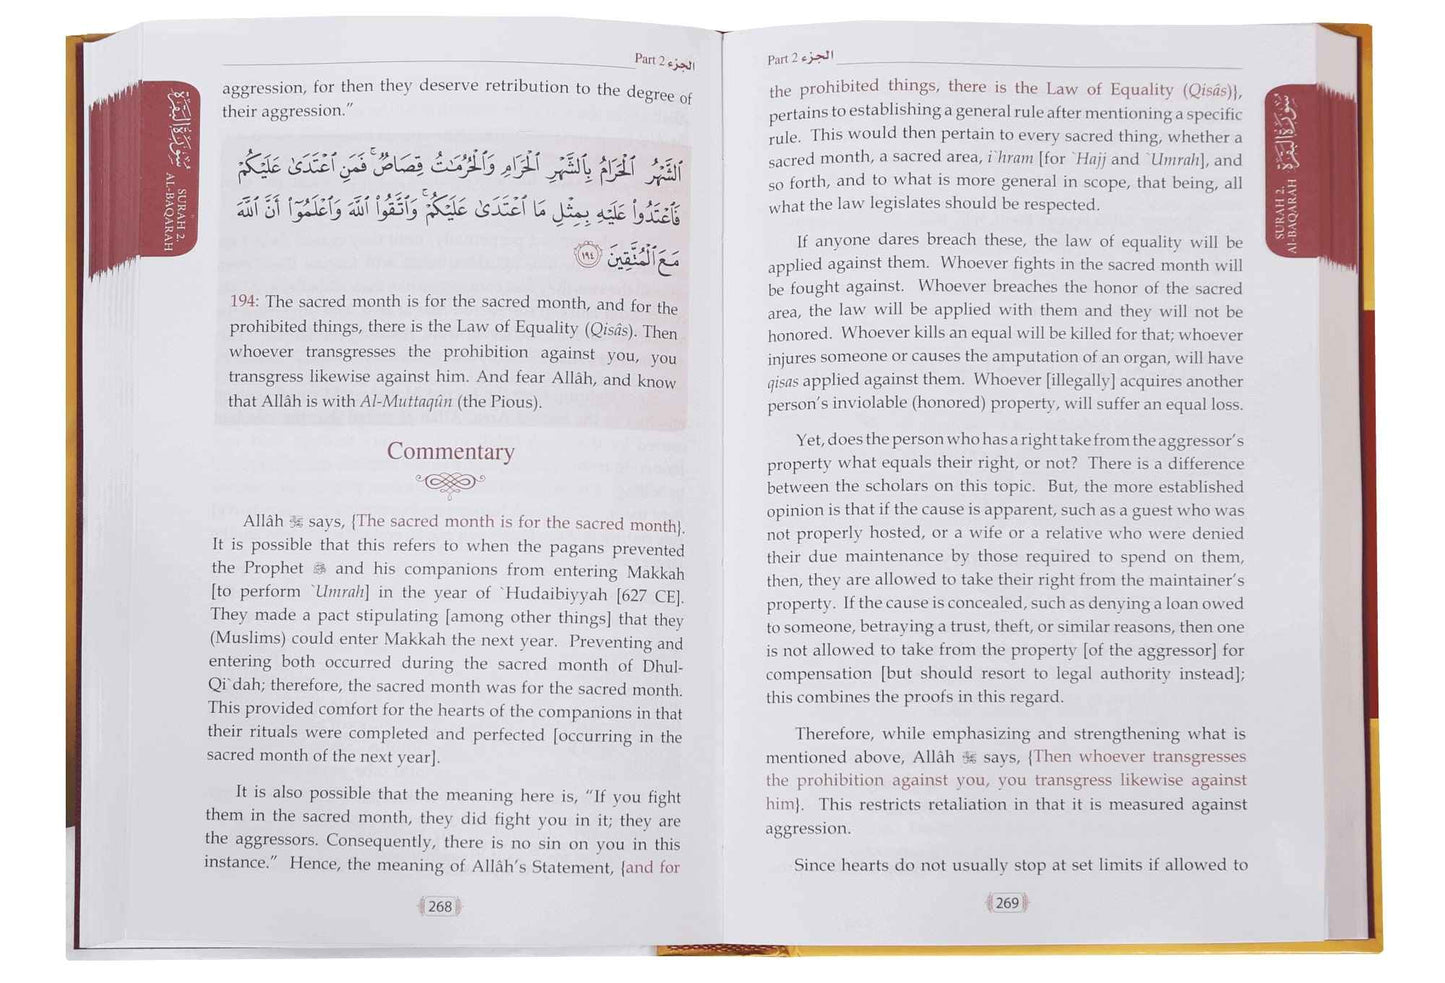 Part 2 الجزء
aggression, for then they deserve retribution to the degree of
their aggression.”
ٱلشَّهْرُ ٱلْحَرَامُ بِٱلشَّهْرِ ٱلْحَرَامِ وَٱلْحُرُمَٰتُ قِصَاصٌ ۚ فَمَنِ ٱعْتَدَىٰ عَلَيْكُمْ
فَٱعْتَدُوا۟ عَلَيْهِ بِمِثْلِ مَا ٱعْتَدَىٰ عَلَيْكُمْ ۚ وَٱتَّقُوا۟ ٱللَّهَ وَٱعْلَمُوٓا۟ أَنَّ ٱللَّهَ
مَعَ ٱلْمُتَّقِينَ ١٩٤
194: The sacred month is for the sacred month, and for the
prohibited things, there is the Law of Equality (Qisâs). Then
whoever transgresses the prohibition against you, you
transgress likewise against him. And fear Allâh, and know
that Allâh is with Al-Muttaqûn (the Pious).
Commentary
Allâh ﷻ says, {The sacred month is for the sacred month}.
It is possible that this refers to when the pagans prevented
the Prophet ﷺ and his companions from entering Makkah
[to perform `Umrah] in the year of `Hudaibiyyah [627 CE].
They made a pact stipulating [among other things] that they
(Muslims) could enter Makkah the next year. Preventing and
entering both occurred during the sacred month of Dhul-
Qi`dah; therefore, the sacred month was for the sacred month.
This provided comfort for the hearts of the companions in that
their rituals were completed and perfected [occurring in the
sacred month of the next year].
It is also possible that the meaning here is, “If you fight
them in the sacred month, they did fight you in it; they are
the aggressors. Consequently, there is no sin on you in this
instance.” Hence, the meaning of Allâh’s Statement, {and for
268
سورة البقرة
SURAH 2.
AL-BAQARAH
Part 2 الجزء
the prohibited things, there is the Law of Equality (Qisâs)},
pertains to establishing a general rule after mentioning a specific
rule. This would then pertain to every sacred thing, whether a
sacred month, a sacred area, i`hram [for `Hajj and `Umrah], and
so forth, and to what is more general in scope, that being, all
what the law legislates should be respected.
If anyone dares breach these, the law of equality will be
applied against them. Whoever fights in the sacred month will
be fought against. Whoever breaches the honor of the sacred
area, the law will be applied with them and they will not be
honored. Whoever kills an equal will be killed for that; whoever
injures someone or causes the amputation of an organ, will have
qisas applied against them. Whoever [illegally] acquires another
person’s inviolable (honored) property, will suffer an equal loss.
Yet, does the person who has a right take from the aggressor’s
property what equals their right, or not? There is a difference
between the scholars on this topic. But, the more established
opinion is that if the cause is apparent, such as a guest who was
not properly hosted, or a wife or a relative who were denied
their due maintenance by those required to spend on them,
then, they are allowed to take their right from the maintainer’s
property. If the cause is concealed, such as denying a loan owed
to someone, betraying a trust, theft, or similar reasons, then one
is not allowed to take from the property [of the aggressor] for
compensation [but should resort to legal authority instead];
this combines the proofs in this regard.
Therefore, while emphasizing and strengthening what is
mentioned above, Allâh ﷻ says, {Then whoever transgresses
the prohibition against you, you transgress likewise against
him}. This restricts retaliation in that it is measured against
aggression.
Since hearts do not usually stop at set limits if allowed to
269
سورة البقرة
SURAH 2.
Al-BAQARAH